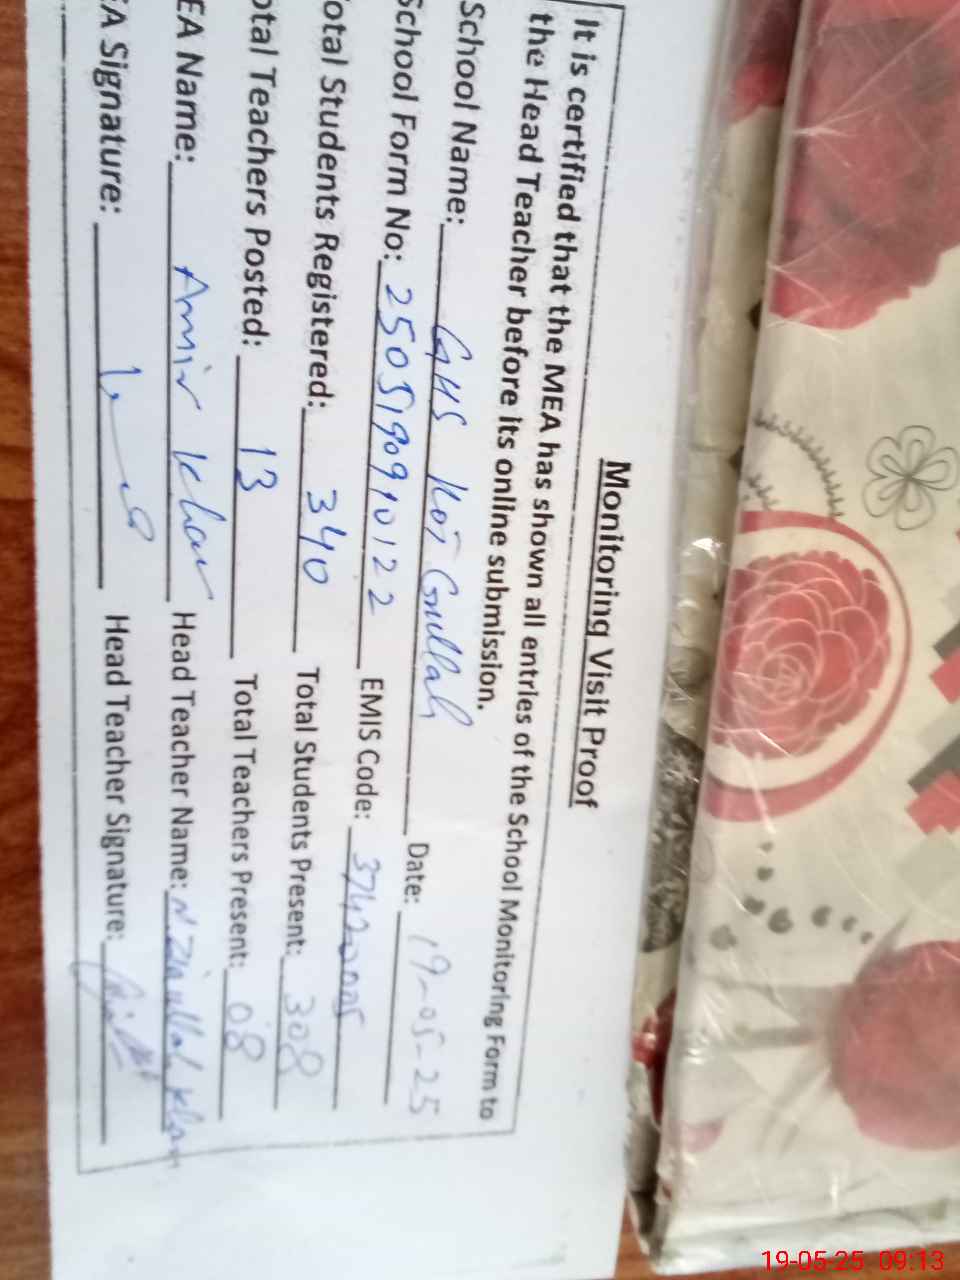 Monitoring Visit Proof
It is certified that the MEA has shown all entries of the School Monitoring Form to
the Head Teacher before its online submission.
School Name: GHS Kot Date: 19-05-25
School Form No: 250519091022 EMIS Code:
otal Students Registered: 340 Total Students Present: 308
otal Teachers Posted: 13 Total Teachers Present: 08
EA Name: Amir Khan Head Teacher Name: N. Ziaullah Khan
EA Signature: Head Teacher Signature:
19-05-25 09:13